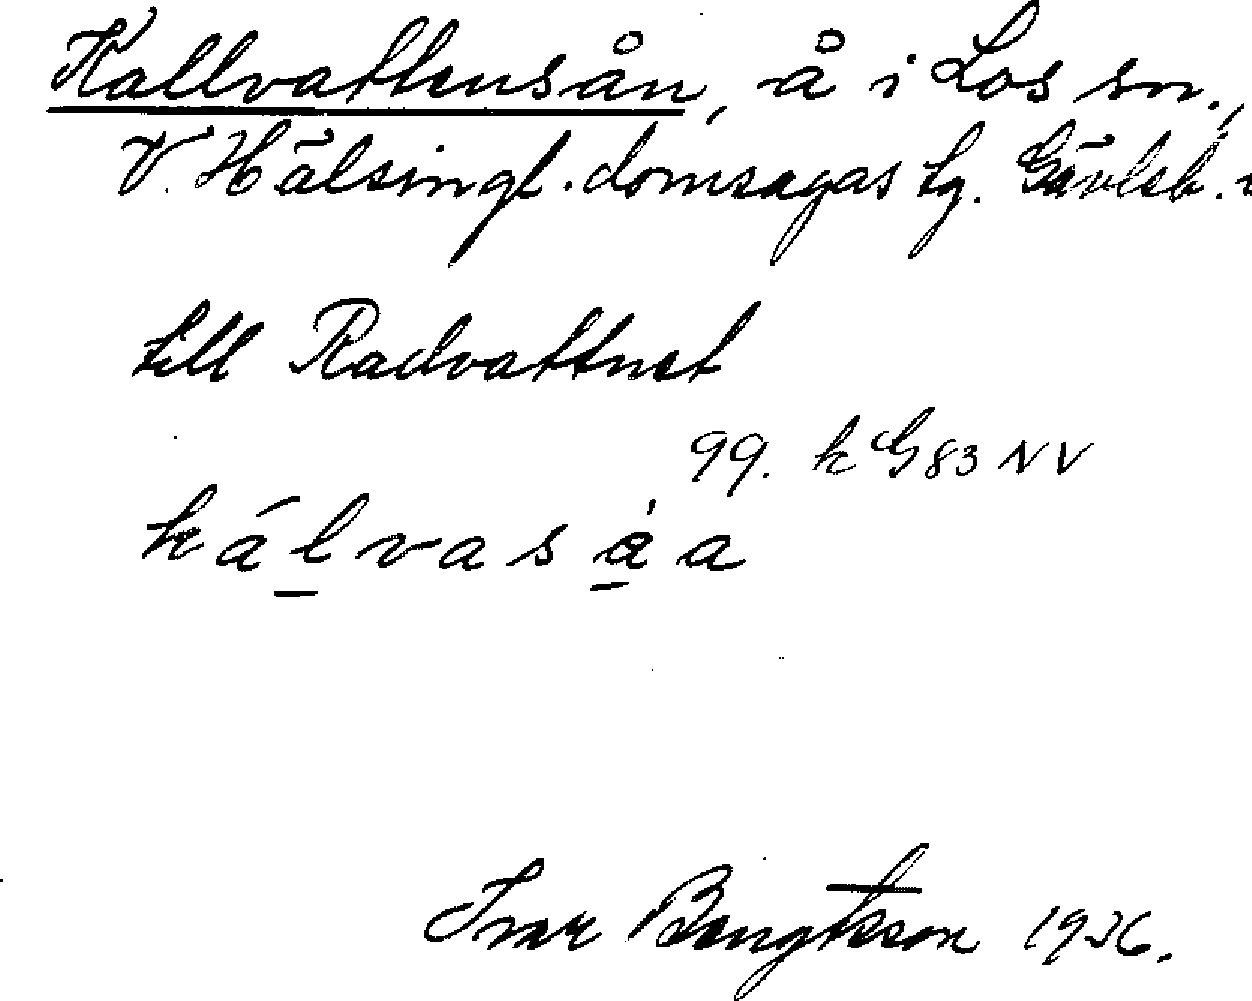 Kallvattensån, å i Los sn.,
V. Hälsingl. domsagas tg. Gävleb.
till Radvattnet
99. k G83 NV
kálvasàa
Ivar Bengtsson 1936.